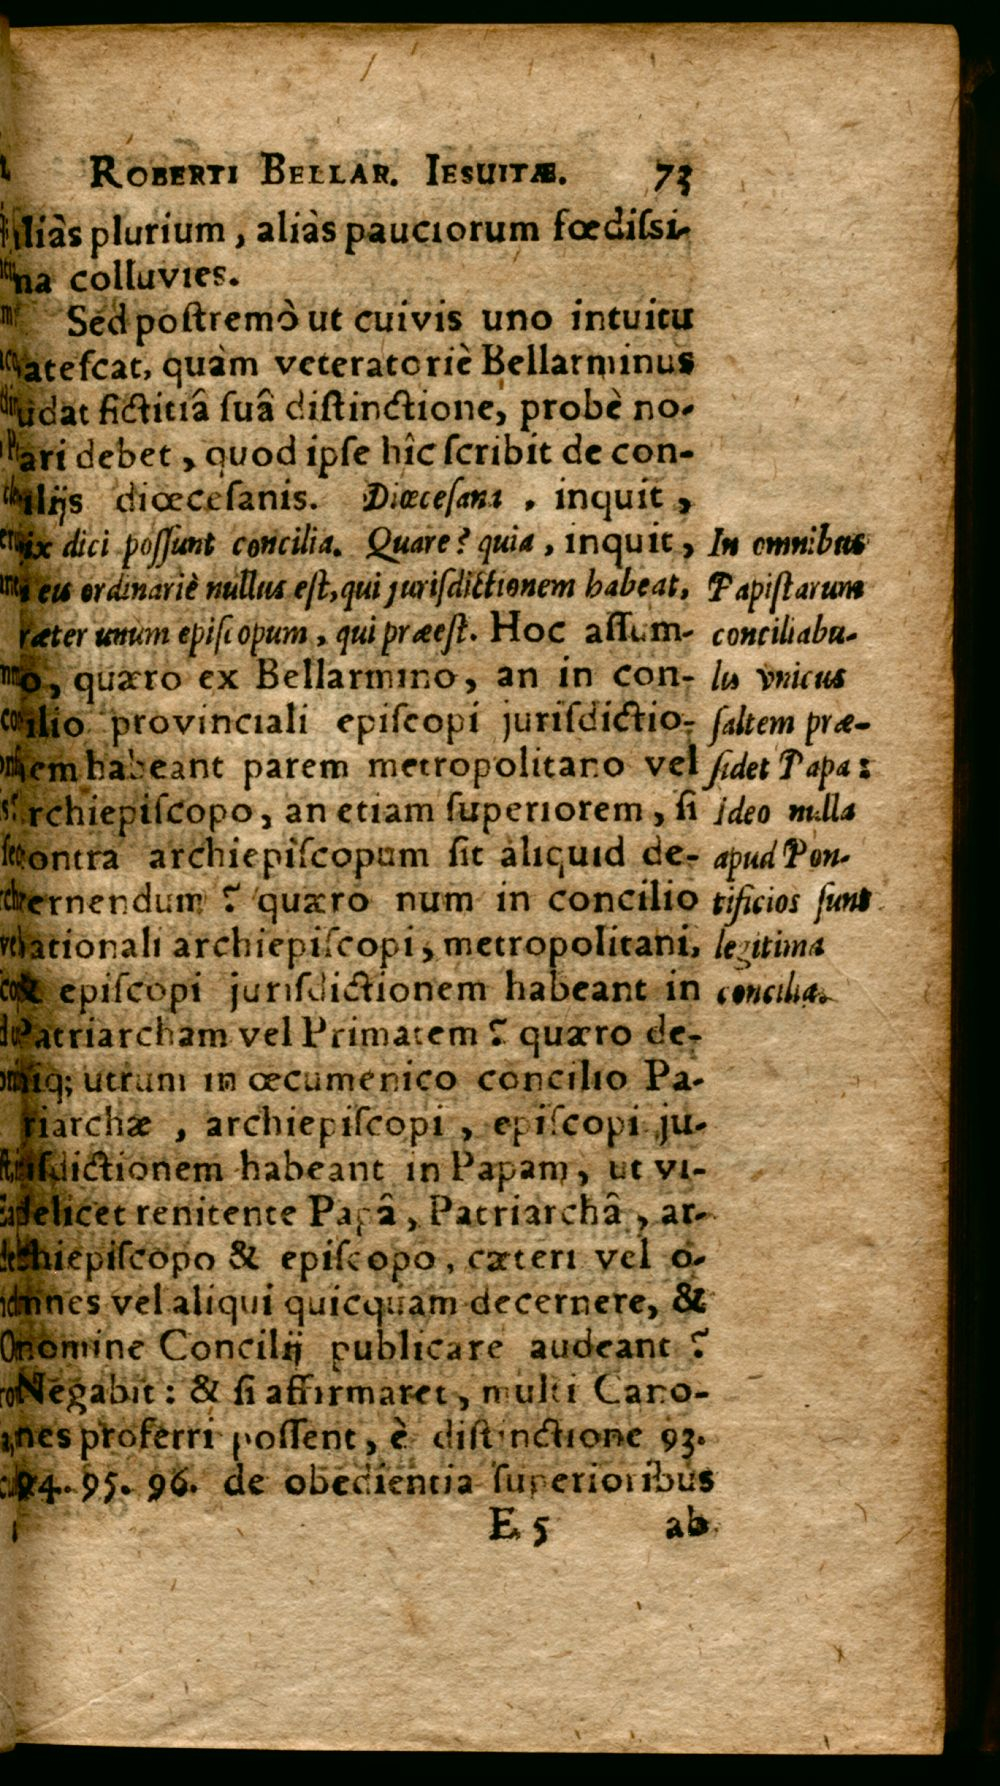 ROBERTI BELLAR. IESUITÆ. 73
aliàs plurium, aliàs pauciorum fœdiſsi-
ma colluvies.
Sed poſtremò ut cuivis uno intuitu
pateſcat, quàm veteratoriè Bellarminus
ludat fictitiâ ſuâ diſtinctione, probè no-
tari debet, quod ipſe hîc ſcribit de con-
cilijs diœceſanis. Diœceſana, inquit,
vix dici poſſunt concilia. Quare? quia, inquit,
in eis ordinariè nullus eſt, qui jurisdictionem habeat,
præter unum epiſcopum, qui præeſt. Hoc aſſum-
pto, quæro ex Bellarmino, an in con-
cilio provinciali epiſcopi juriſdictio-
nem habeant parem metropolitano vel
archiepiſcopo, an etiam ſuperiorem, ſi
contra archiepiſcopum ſit aliquid de-
cernendum? quæro num in concilio
nationali archiepiſcopi, metropolitani,
& epiſcopi jurisdictionem habeant in
Patriarcham vel Primatem? quæro de-
niq; utrum in œcumenico concilio Pa-
triarchæ, archiepiſcopi, epiſcopi ju-
riſdictionem habeant in Papam, ut vi-
delicet renitente Papâ, Patriarchâ, ar-
chiepiſcopo & epiſcopo, cæteri vel o-
mnes vel aliqui quicquam decernere, &
nomine Concilij publicare audeant?
Negabit: & ſi affirmaret, multi Cano-
nes proferri poſſent, è diſtinctione 93.
94. 95. 96. de obedientia ſuperioribus
E 5 ab
In omnibus
Papiſtarum
conciliabu-
lis vnicus
ſaltem præ-
ſidet Papa:
ideo nulla
apud Pon-
tificios ſunt
legitima
concilia.